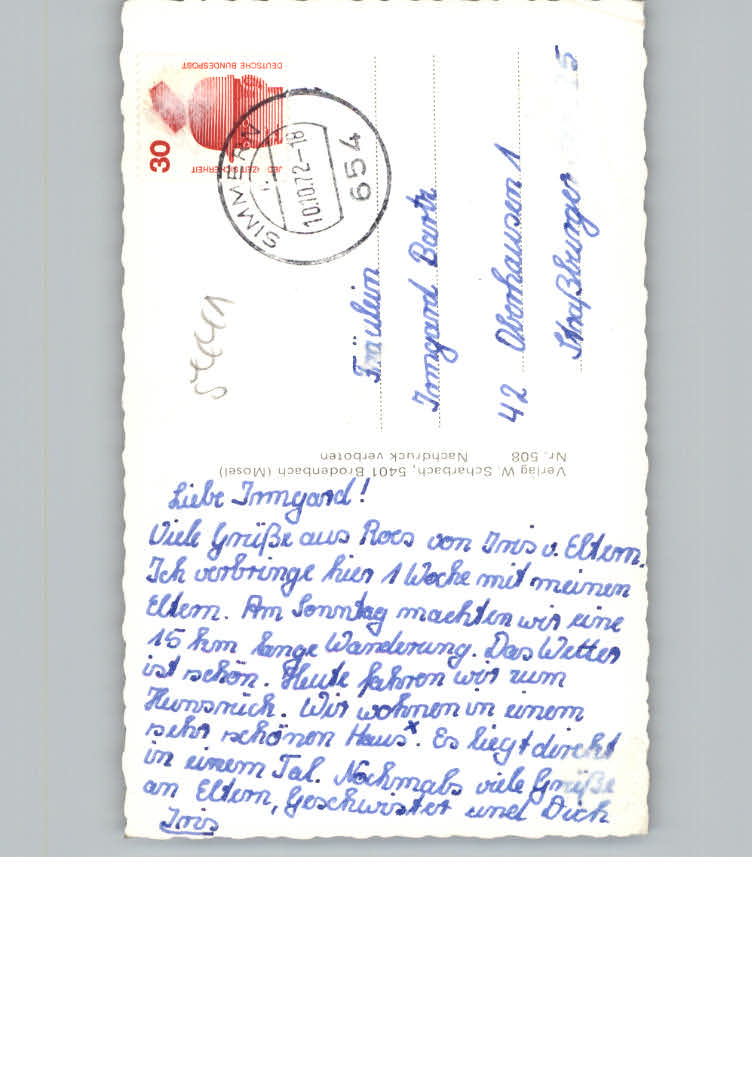 Liebe Irmgard!
Viele Grüße aus Roes von Iris u. Eltern.
Ich verbringe hier 1 Woche mit meinen
Eltern. Am Sonntag machten wir eine
15 km lange Wanderung. Das Wetter
ist schön. Heute fahren wir zum
Hunsrück. Wir wohnen in einem
sehr schönen Haus x. Es liegt direkt
in einem Tal. Nochmals viele Grüße
an Eltern, Geschwister und Dich
Iris
Fräulein
Irmgard Barth
42 Oberhausen 1
Straßburger
Verlag W. Scharbach, 5401 Brodenbach (Mosel)
Nr. 508 Nachdruck verboten
DEUTSCHE BUNDESPOST
30
ZEIT SICHERHEIT
SIMMERN
10.10.72-18
654